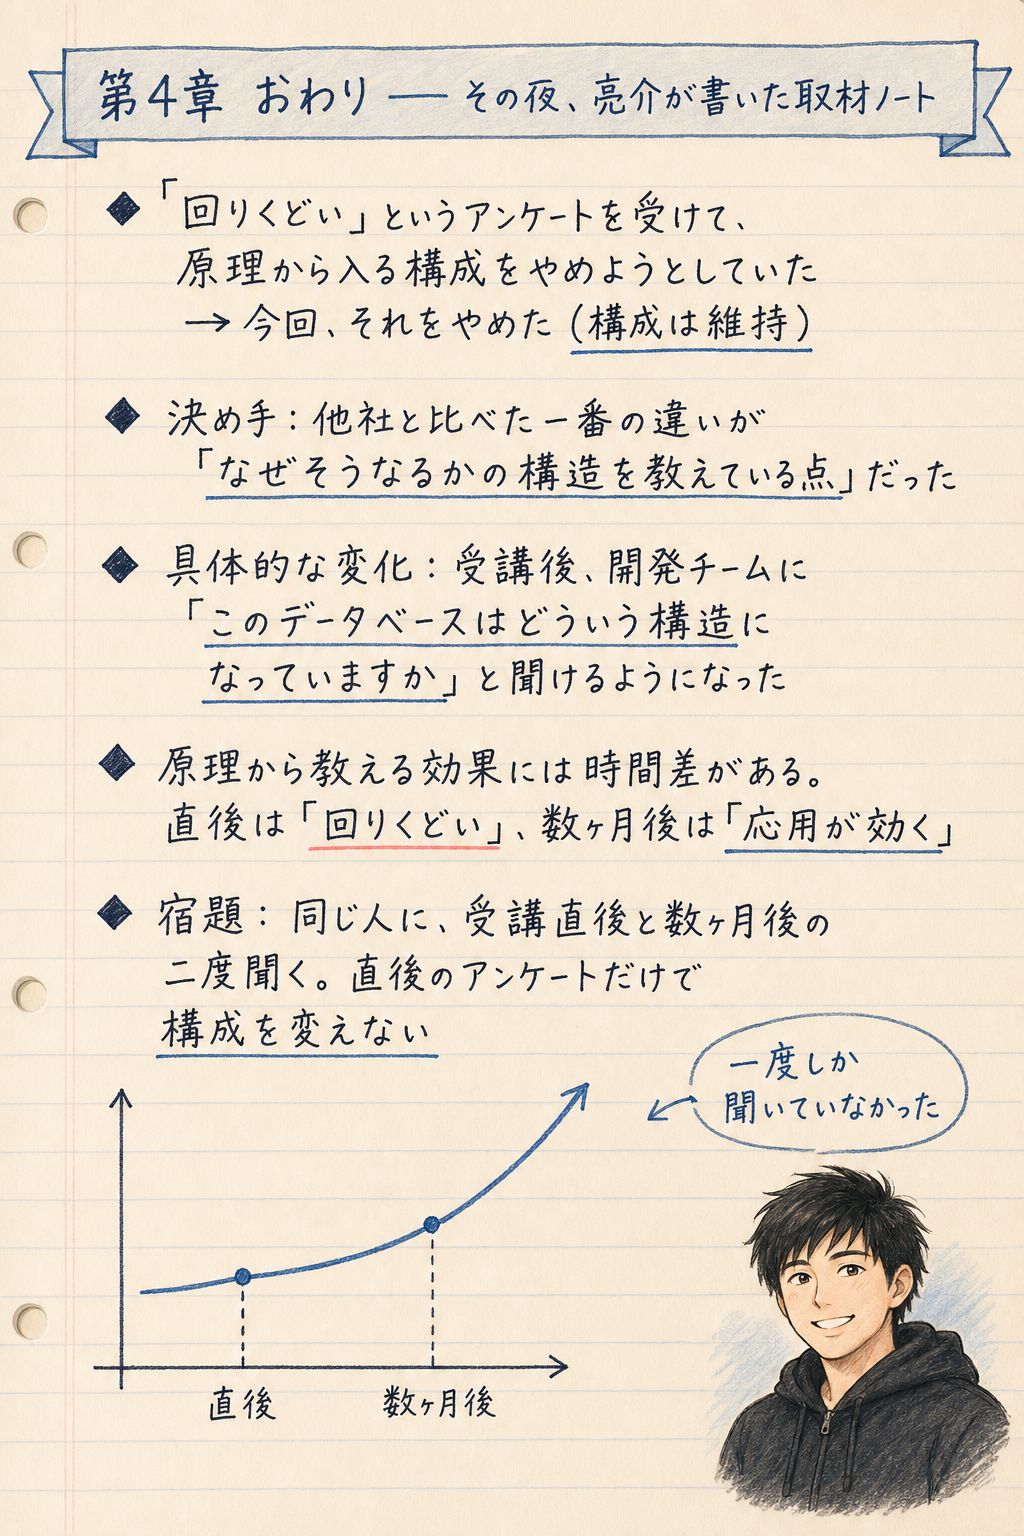 第4章 おわり — その夜、亮介が書いた取材ノート
◆「回りくどい」というアンケートを受けて、
原理から入る構成をやめようとしていた
→ 今回、それをやめた（構成は維持）
◆ 決め手：他社と比べた一番の違いが
「なぜそうなるかの構造を教えている点」だった
◆ 具体的な変化：受講後、開発チームに
「このデータベースはどういう構造に
なっていますか」と聞けるようになった
◆ 原理から教える効果には時間差がある。
直後は「回りくどい」、数ヶ月後は「応用が効く」
◆ 宿題：同じ人に、受講直後と数ヶ月後の
二度聞く。直後のアンケートだけで
構成を変えない
一度しか
聞いていなかった
直後
数ヶ月後